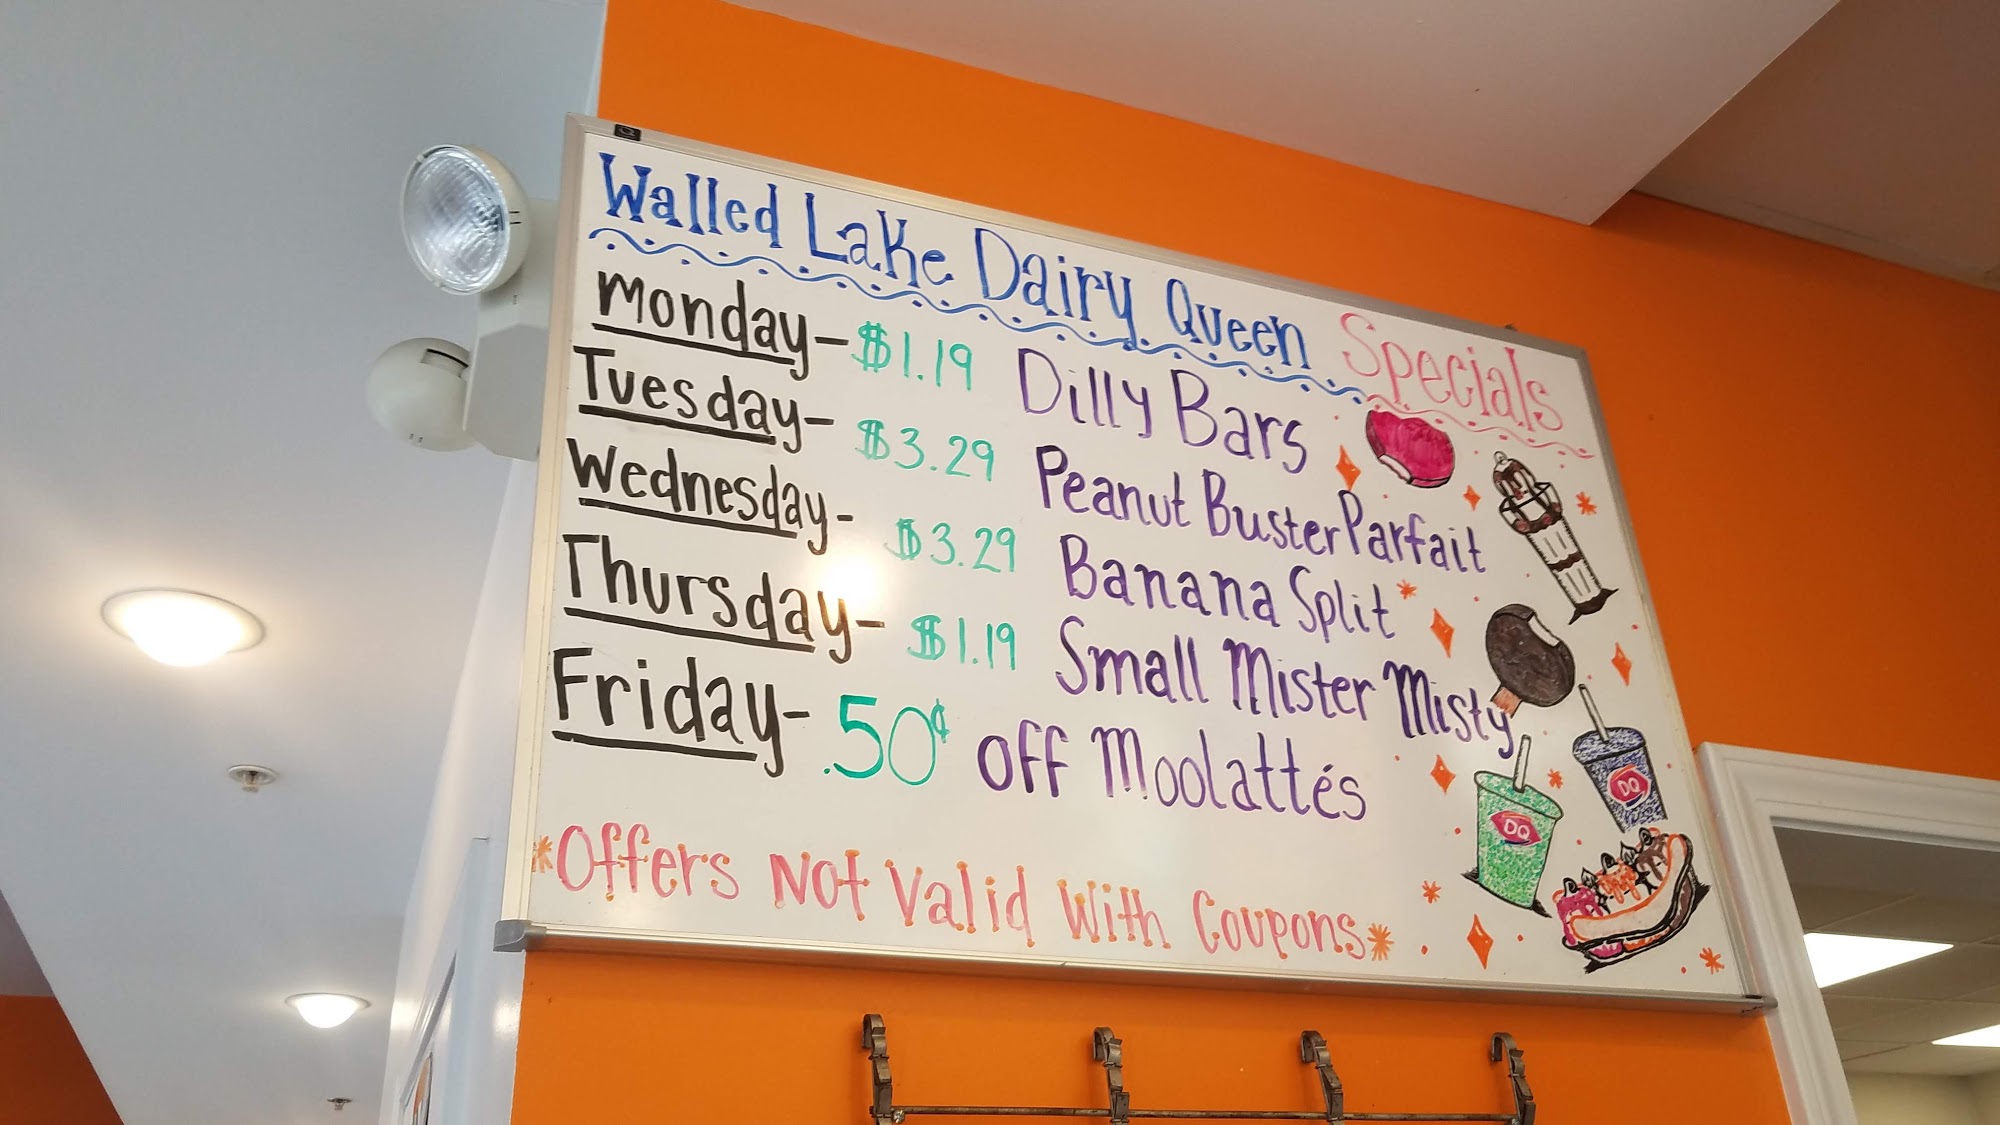 Walled Lake Dairy Queen Specials
Monday- $1.19 Dilly Bars
Tuesday- $3.29 Peanut Buster Parfait
Wednesday- $3.29 Banana Split
Thursday- $1.19 Small Mister Misty
Friday- .50¢ off Moolattés
*Offers Not Valid With Coupons*
DQ
DQ